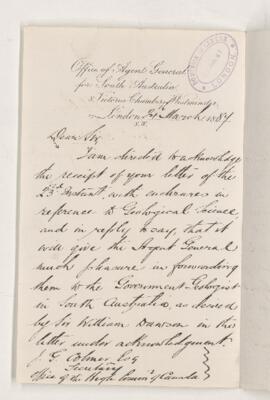 Office of Agent General
for South Australia
8 Victoria Chambers, Westminster
S.W.
London 31 March 1887
Dear Sir
I am directed to acknowledge
the receipt of your letter of the
23d Instant, with enclosures in
reference to Geological Science,
and in reply to say, that it
will give the Agent General
much pleasure in forwarding
them to the Government Geologist
in South Australia, as desired
by Sir William Dawson in this
letter under acknowledgment.
J. G. Colmer Esq
Secretary
Office of the High Commr of Canada
LONDON